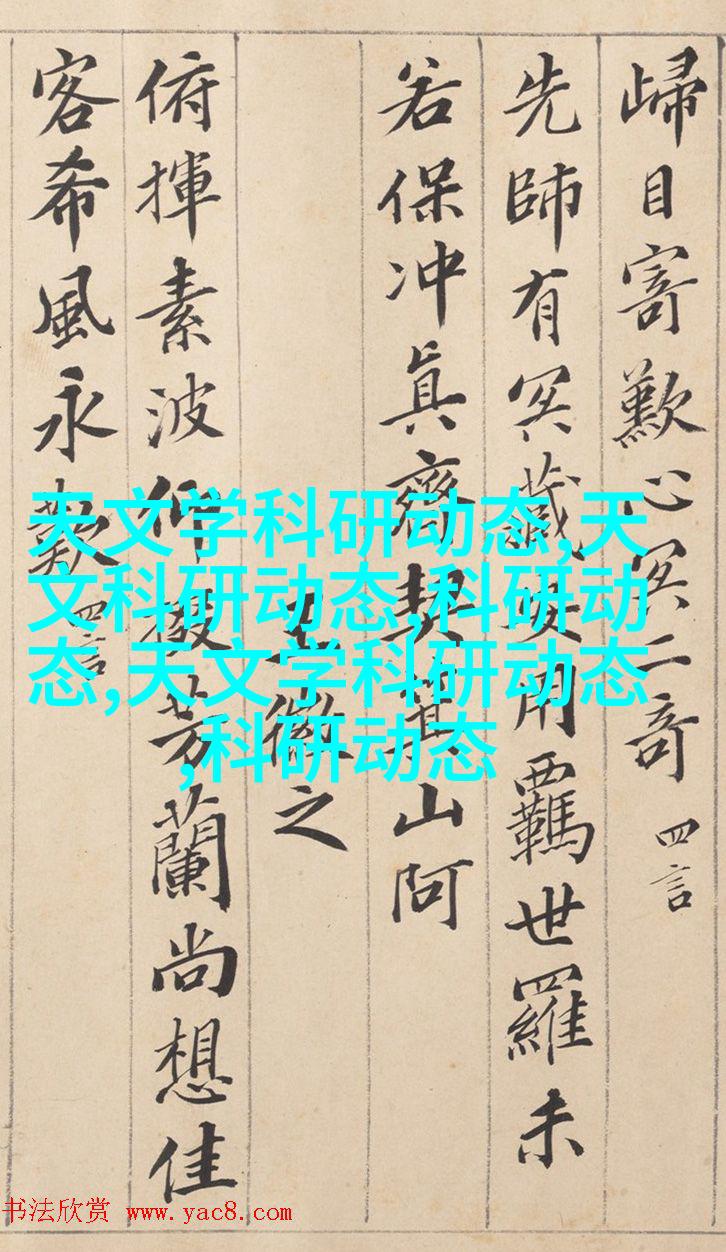 歸目寄歎心冥二奇 四言
先師有冥藏安用羈世羅未
若保沖真齊契箕山阿
王徽之
俯揮素波仰掇芳蘭尚想佳
客希風永歎 四言
天文学科研动态,天
文科研动态,科研动
态,天文学科研动态
,科研动态
书法欣赏 www.yac8.com